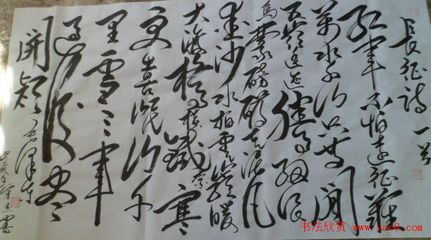 長征詩一首
红軍不怕遠征難
萬水千山只等閒
五嶺逶迤騰細浪
烏蒙磅礴走泥丸
金沙水拍雲崖暖
大渡橋横鐵索寒
更喜岷山千
里雪三軍
過後盡
開顔毛澤東
书法欣赏 www.yac8.com